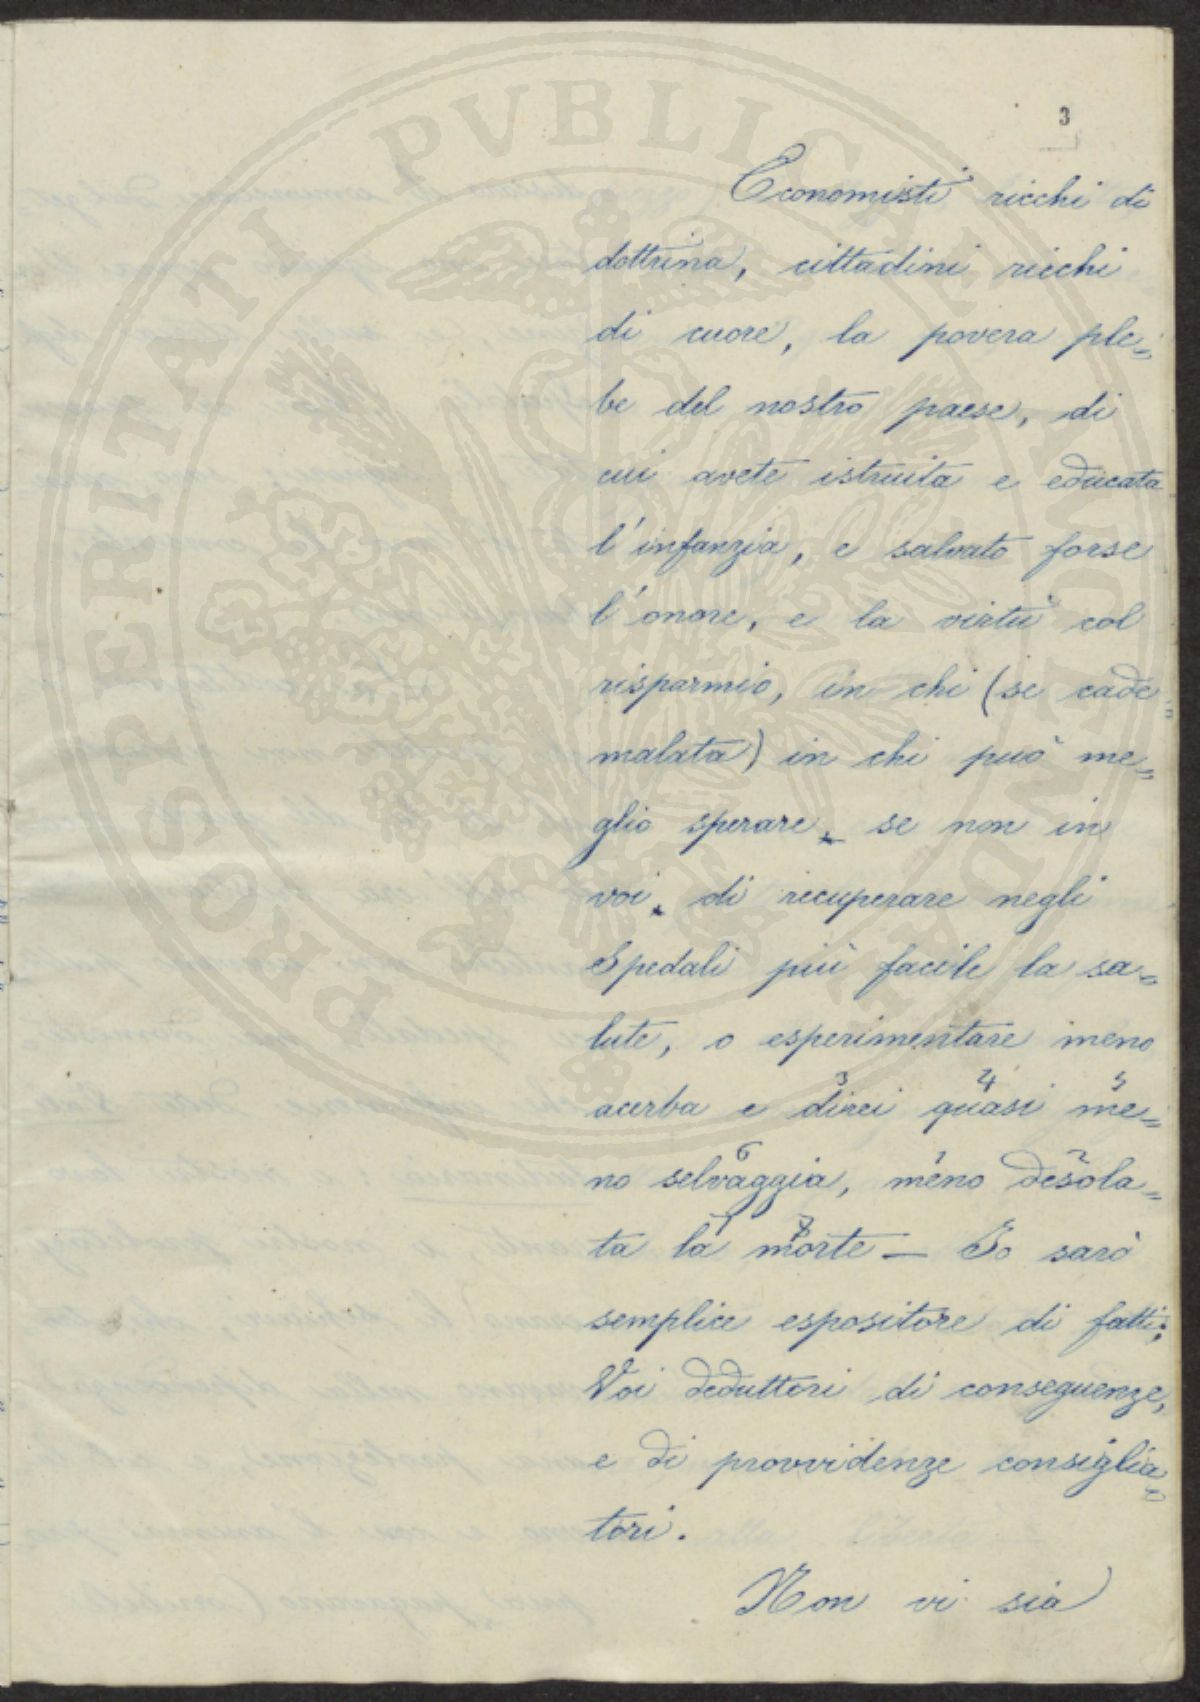 3
Economisti ricchi di
dottrina, cittadini ricchi
di cuore, la povera ple=
be del nostro paese, di
cui avete istruita e educata
l'infanzia, e salvato forse
l'onore, e la virtù col
risparmio, in chi (se cade
malata) in chi può me=
glio sperare, se non in
voi, di recuperare negli
Spedali più facile la sa=
lute, o esperimentare meno
acerba e direi quasi me=
3 4 5
no selvaggia, meno desola=
6 1 2
ta la morte — Io sarò
7 8
semplice espositore di fatti;
Voi deduttori di conseguenze,
e di provvidenze consiglia=
tori.
Non vi sia
PROSPERITATI PVBLICAE AVGENDAE